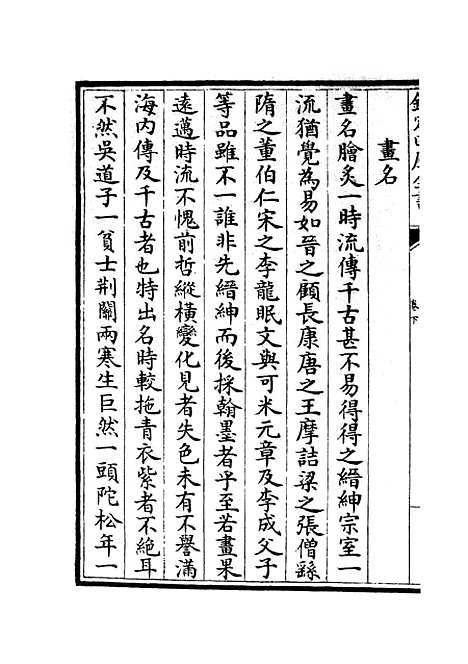 卷下
畫名
畫名膾炙一時流傳千古甚不易得得之縉紳宗室一
流猶覺為易如晉之顧長康唐之王摩詰梁之張僧繇
隋之董伯仁宋之李龍眠文與可米元章及李成父子
等品雖不一誰非先縉紳而後採翰墨者乎至若畫果
遠邁時流不愧前哲縱橫變化見者失色未有不譽滿
海內傳及千古者也特出名時較拖青衣紫者不絕耳
不然吳道子一貧士荆關兩寒生巨然一頭陀松年一